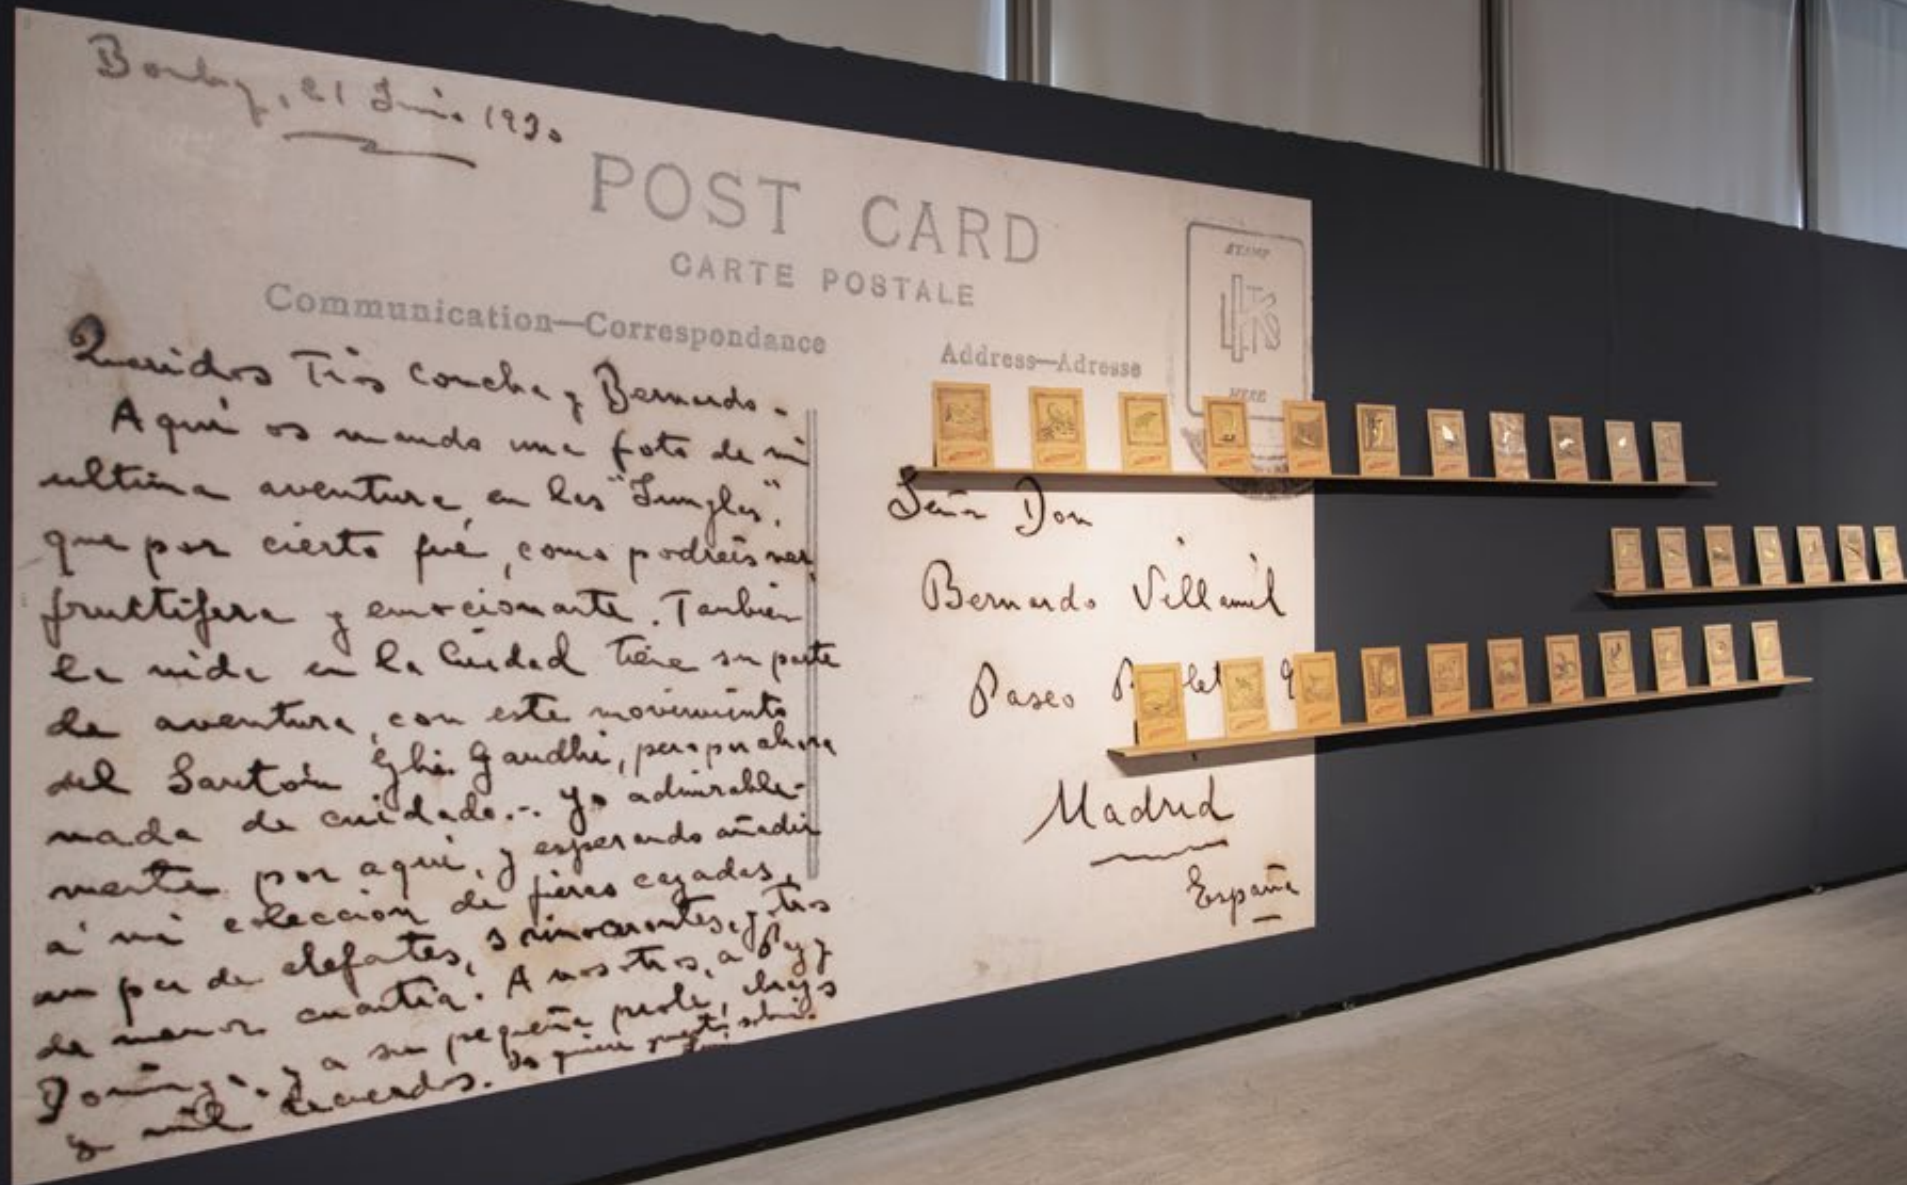 Bombay, 21 Junio 1930
POST CARD
CARTE POSTALE
Communication—Correspondance
Queridos Tíos Concha y Bernardo.
Aquí os mando una foto de mi
ultima aventura, en las "Jungles",
que por cierto fué, como podreís ver,
fructífera y emocionante. También
la vida en la Ciudad tiene su parte
de aventura, con este movimiento
del Santón Gandhi, pero por ahora
nada de cuidado.-. Yo admirable-
mente por aquí, y esperando añadir
a mi colección de fieras cazadas,
un par de elefantes, rinocerontes, y
de menor cuantía. A vosotros, a
y a su pequeña prole,
y mil recuerdos. Os quiere vuestro sobrino
Address—Adresse
STAMP
HERE
Señor Don
Bernardo Villamil
Paseo
Madrid
España